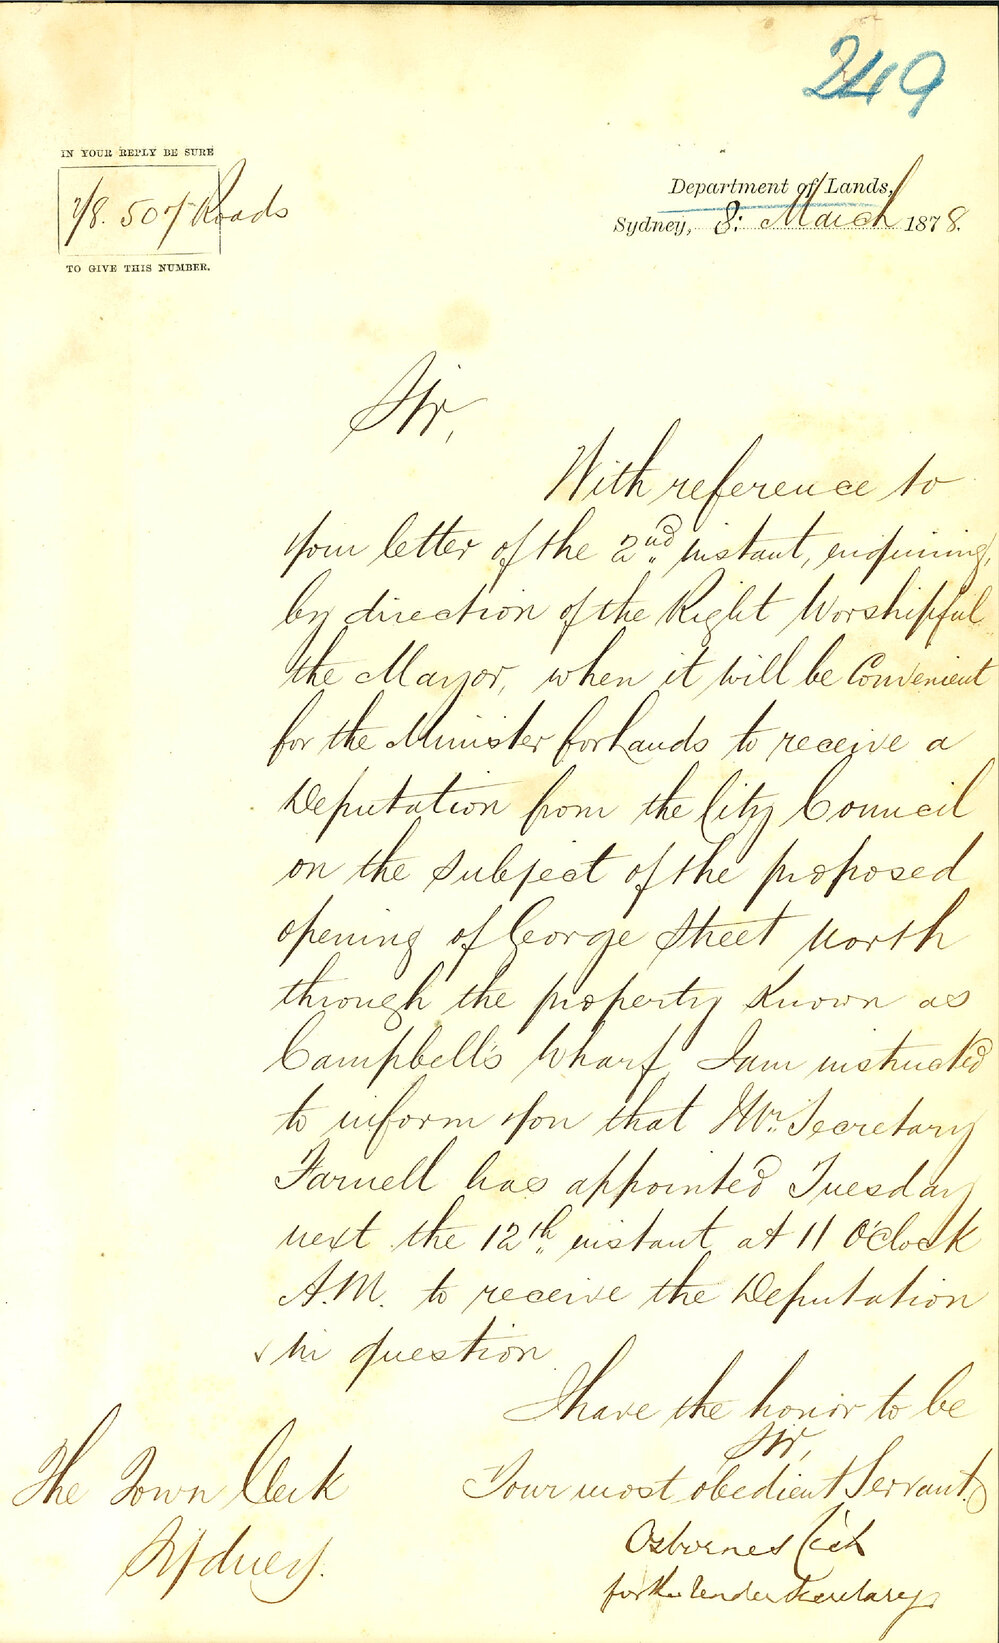 249
IN YOUR REPLY BE SURE
78. 507 Roads
TO GIVE THIS NUMBER.
Department of Lands,
Sydney, 8. March 1878.
Sir,
With reference to
your letter of the 2nd. instant, enquiring,
by direction of the Right Worshipful
the Mayor, when it will be Convenient
for the Minister for Lands to receive a
Deputation from the City Council
on the subject of the proposed
opening of George Street North
through the property known as
Campbell's Wharf, I am instructed
to inform you that Mr. Secretary
Farnell has appointed Tuesday
next the 12th. instant at 11 O'Clock
A.M. to receive the Deputation
in question
I have the honor to be
Sir,
Your most obedient Servant.
Osborne
for the Under Secretary
The Town Clerk
Sydney.